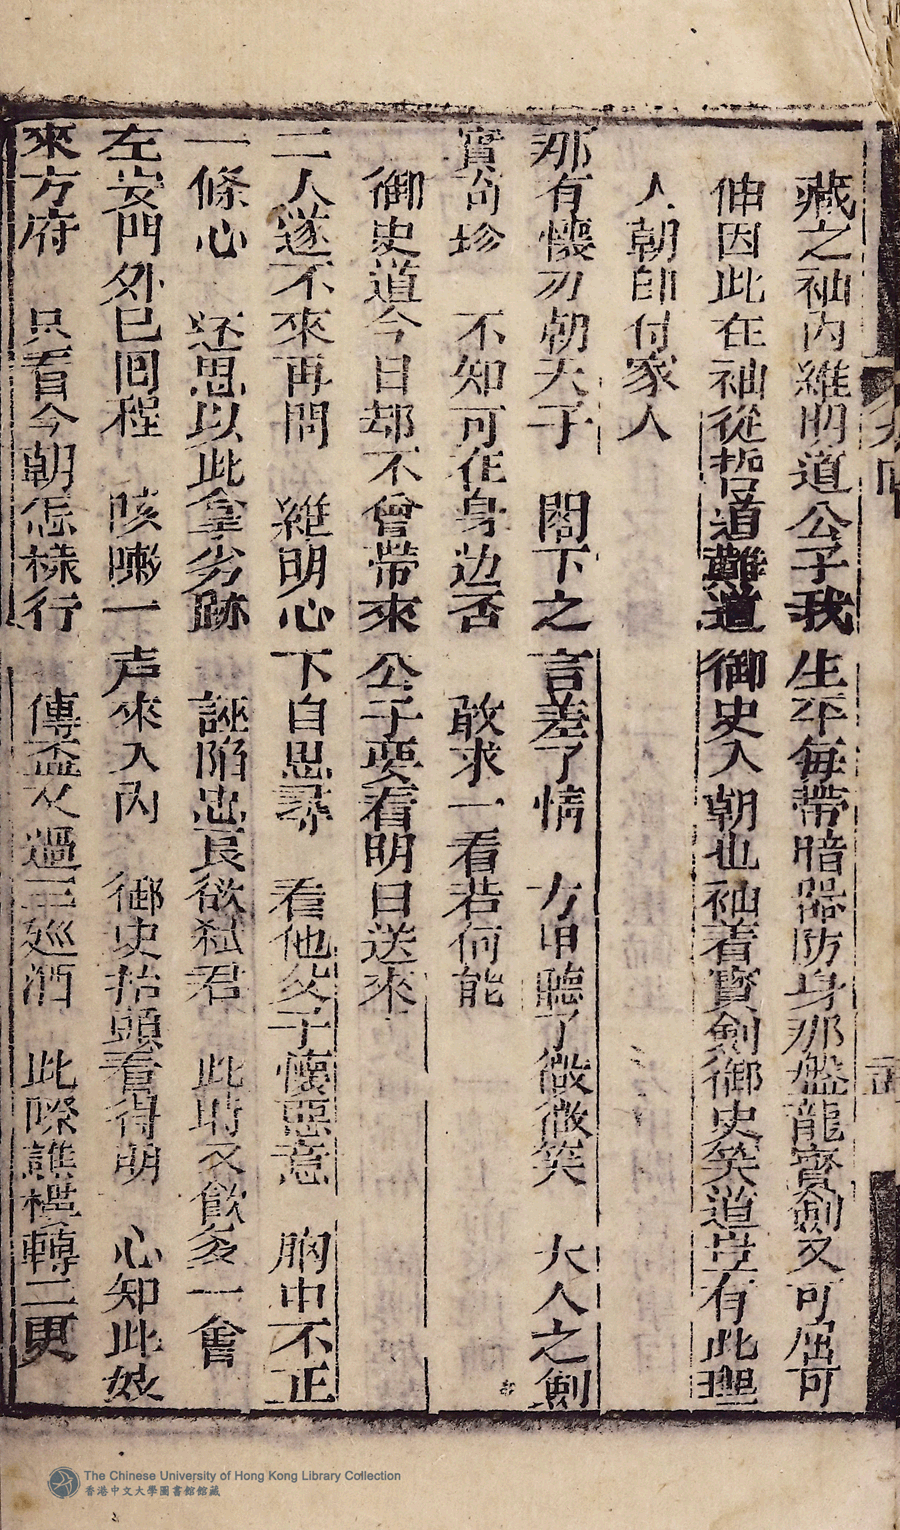 藏之袖內維明道公子我生平每帶暗器防身那盤龍寳劍又可屈可
伸因此在袖從哲道難道御史入朝也袖着寳劍御史笑道豈有此理
人朝卽付家人
那有懷刃朝天子　閣下之言差了情　方由聽了微微笑　大人之劍
實尚珍　不知可在身边否　敢求一看若何能
御史道今日却不曾帶來公子要看明日送來
二人遂不來再問　維明心下自思尋　看他父子懷惡意　胸中不正
一條心　还思以此拿劣跡　誣陷忠良欲弒君　此時又飲多一會
左安門外已回程　咳嗽一声來入內　御史抬頭看得明　心知此妓
來方府　只看今朝怎樣行　傳盃又過三廵酒　此際譙樓轉二更
The Chinese University of Hong Kong Library Collection
香港中文大學圖書館館藏